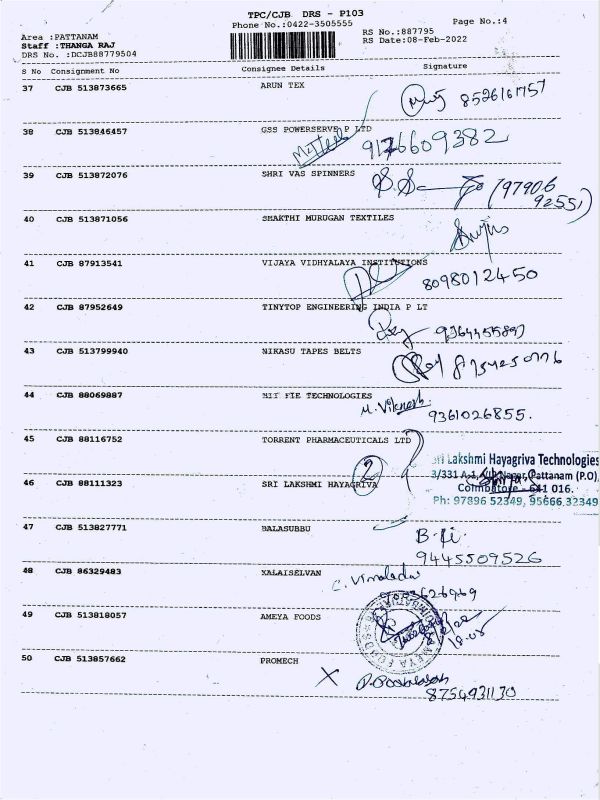 TPC/CJB DRS - P103
Phone No.:0422-3505555
Page No.:4
Area :PATTANAM
RS No.:887795
Staff :THANGA RAJ
RS Date:08-Feb-2022
DRS No. :DCJB88779504
S No Consignment No Consignee Details Signature
37 CJB 513873665 ARUN TEX
8526161757
38 CJB 513846457 GSS POWERSERVE P LTD
9176609382
39 CJB 513872076 SHRI VAS SPINNERS
(97906
92551)
40 CJB 513871056 SHAKTHI MURUGAN TEXTILES
41 CJB 87913541 VIJAYA VIDHYALAYA INSTITUTIONS
8098012450
42 CJB 87952649 TINYTOP ENGINEERING INDIA P LT
43 CJB 513799940 NIKASU TAPES BELTS
44 CJB 88069887 TECHNOLOGIES
M. Viknesh
9361026855.
45 CJB 88116752 TORRENT PHARMACEUTICALS LTD
Sri Lakshmi Hayagriva Technologies
3/331 A-1, Nagar, Pattanam (P.O)
Coimbatore - 641 016.
Ph: 97896 52349, 95666 32349
46 CJB 88111323 SRI LAKSHMI HAYAGRIVA
2
47 CJB 513827771 BALASUBBU
9445509526
48 CJB 86329483 KALAISELVAN
49 CJB 513818057 AMEYA FOODS
50 CJB 513857662 PROMECH
X
8754931130